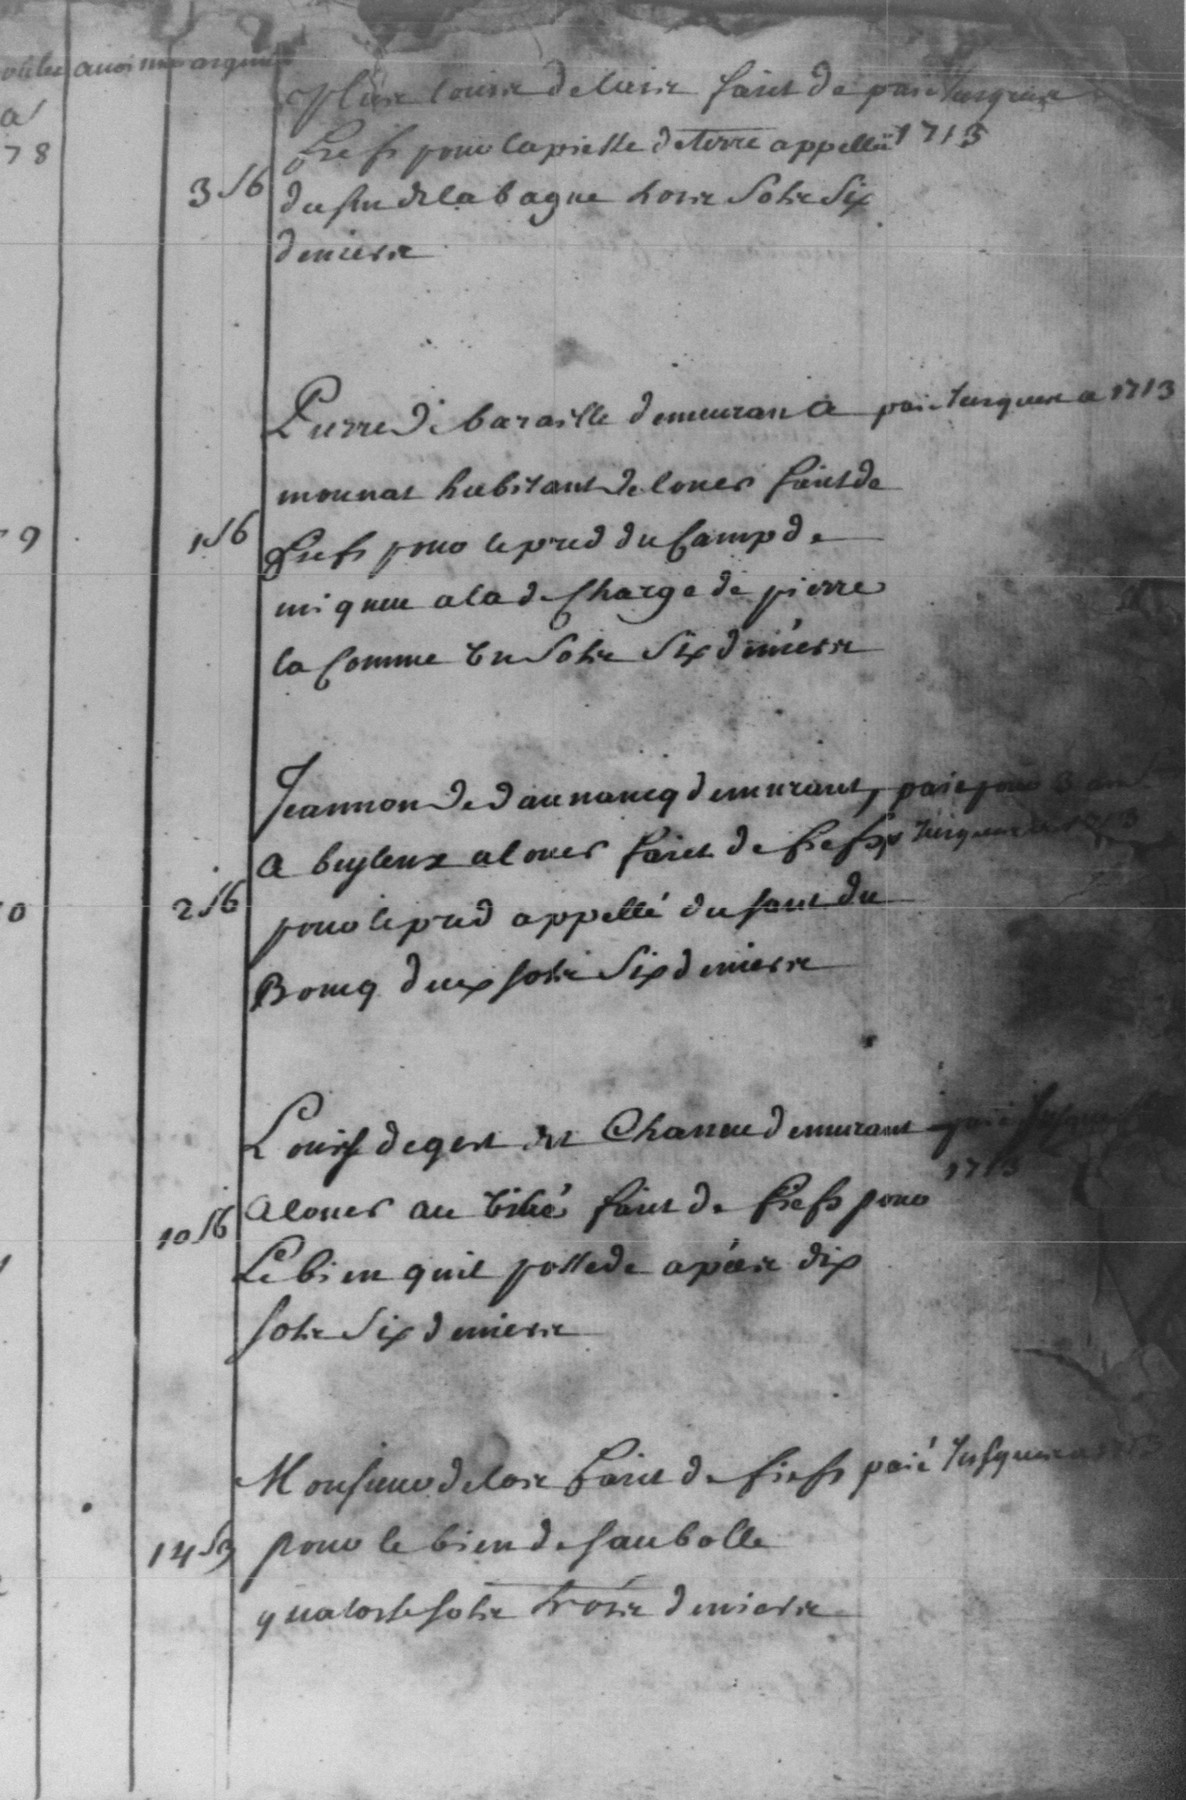 a
78
Plus Louis de fait de paié Jusques a
fiefs pour la piesse de terre appellée 1713
3 s 6 du de la bagne trois sols six
deniers
Pierre de baraille demeurant a paié Jusques a 1713
mounat habitant de loues faict de
9 1 s 6 fiefs pour le pred du camp de
miqueu a la de charge de pierre
la comme un sols six deniers
Jeannon de daunancq demurant, paié pour 3 ans
a beyleux a loues faict de fiefs, Jusques a 1713
0 2 s 6 pour le pred appellé du sout du
Bourcq deux sols six deniers
Louis de gert dit Chanue demurant paié Jusques
1713
10 s 6 a loues au faict de fiefs pour
Le bien quil possede a part dix
sols six deniers
Monsieur de faict de fiefs paié Jusques a 1713
14 s 3 pour le bien de saubolle
quatorse sols trois deniers